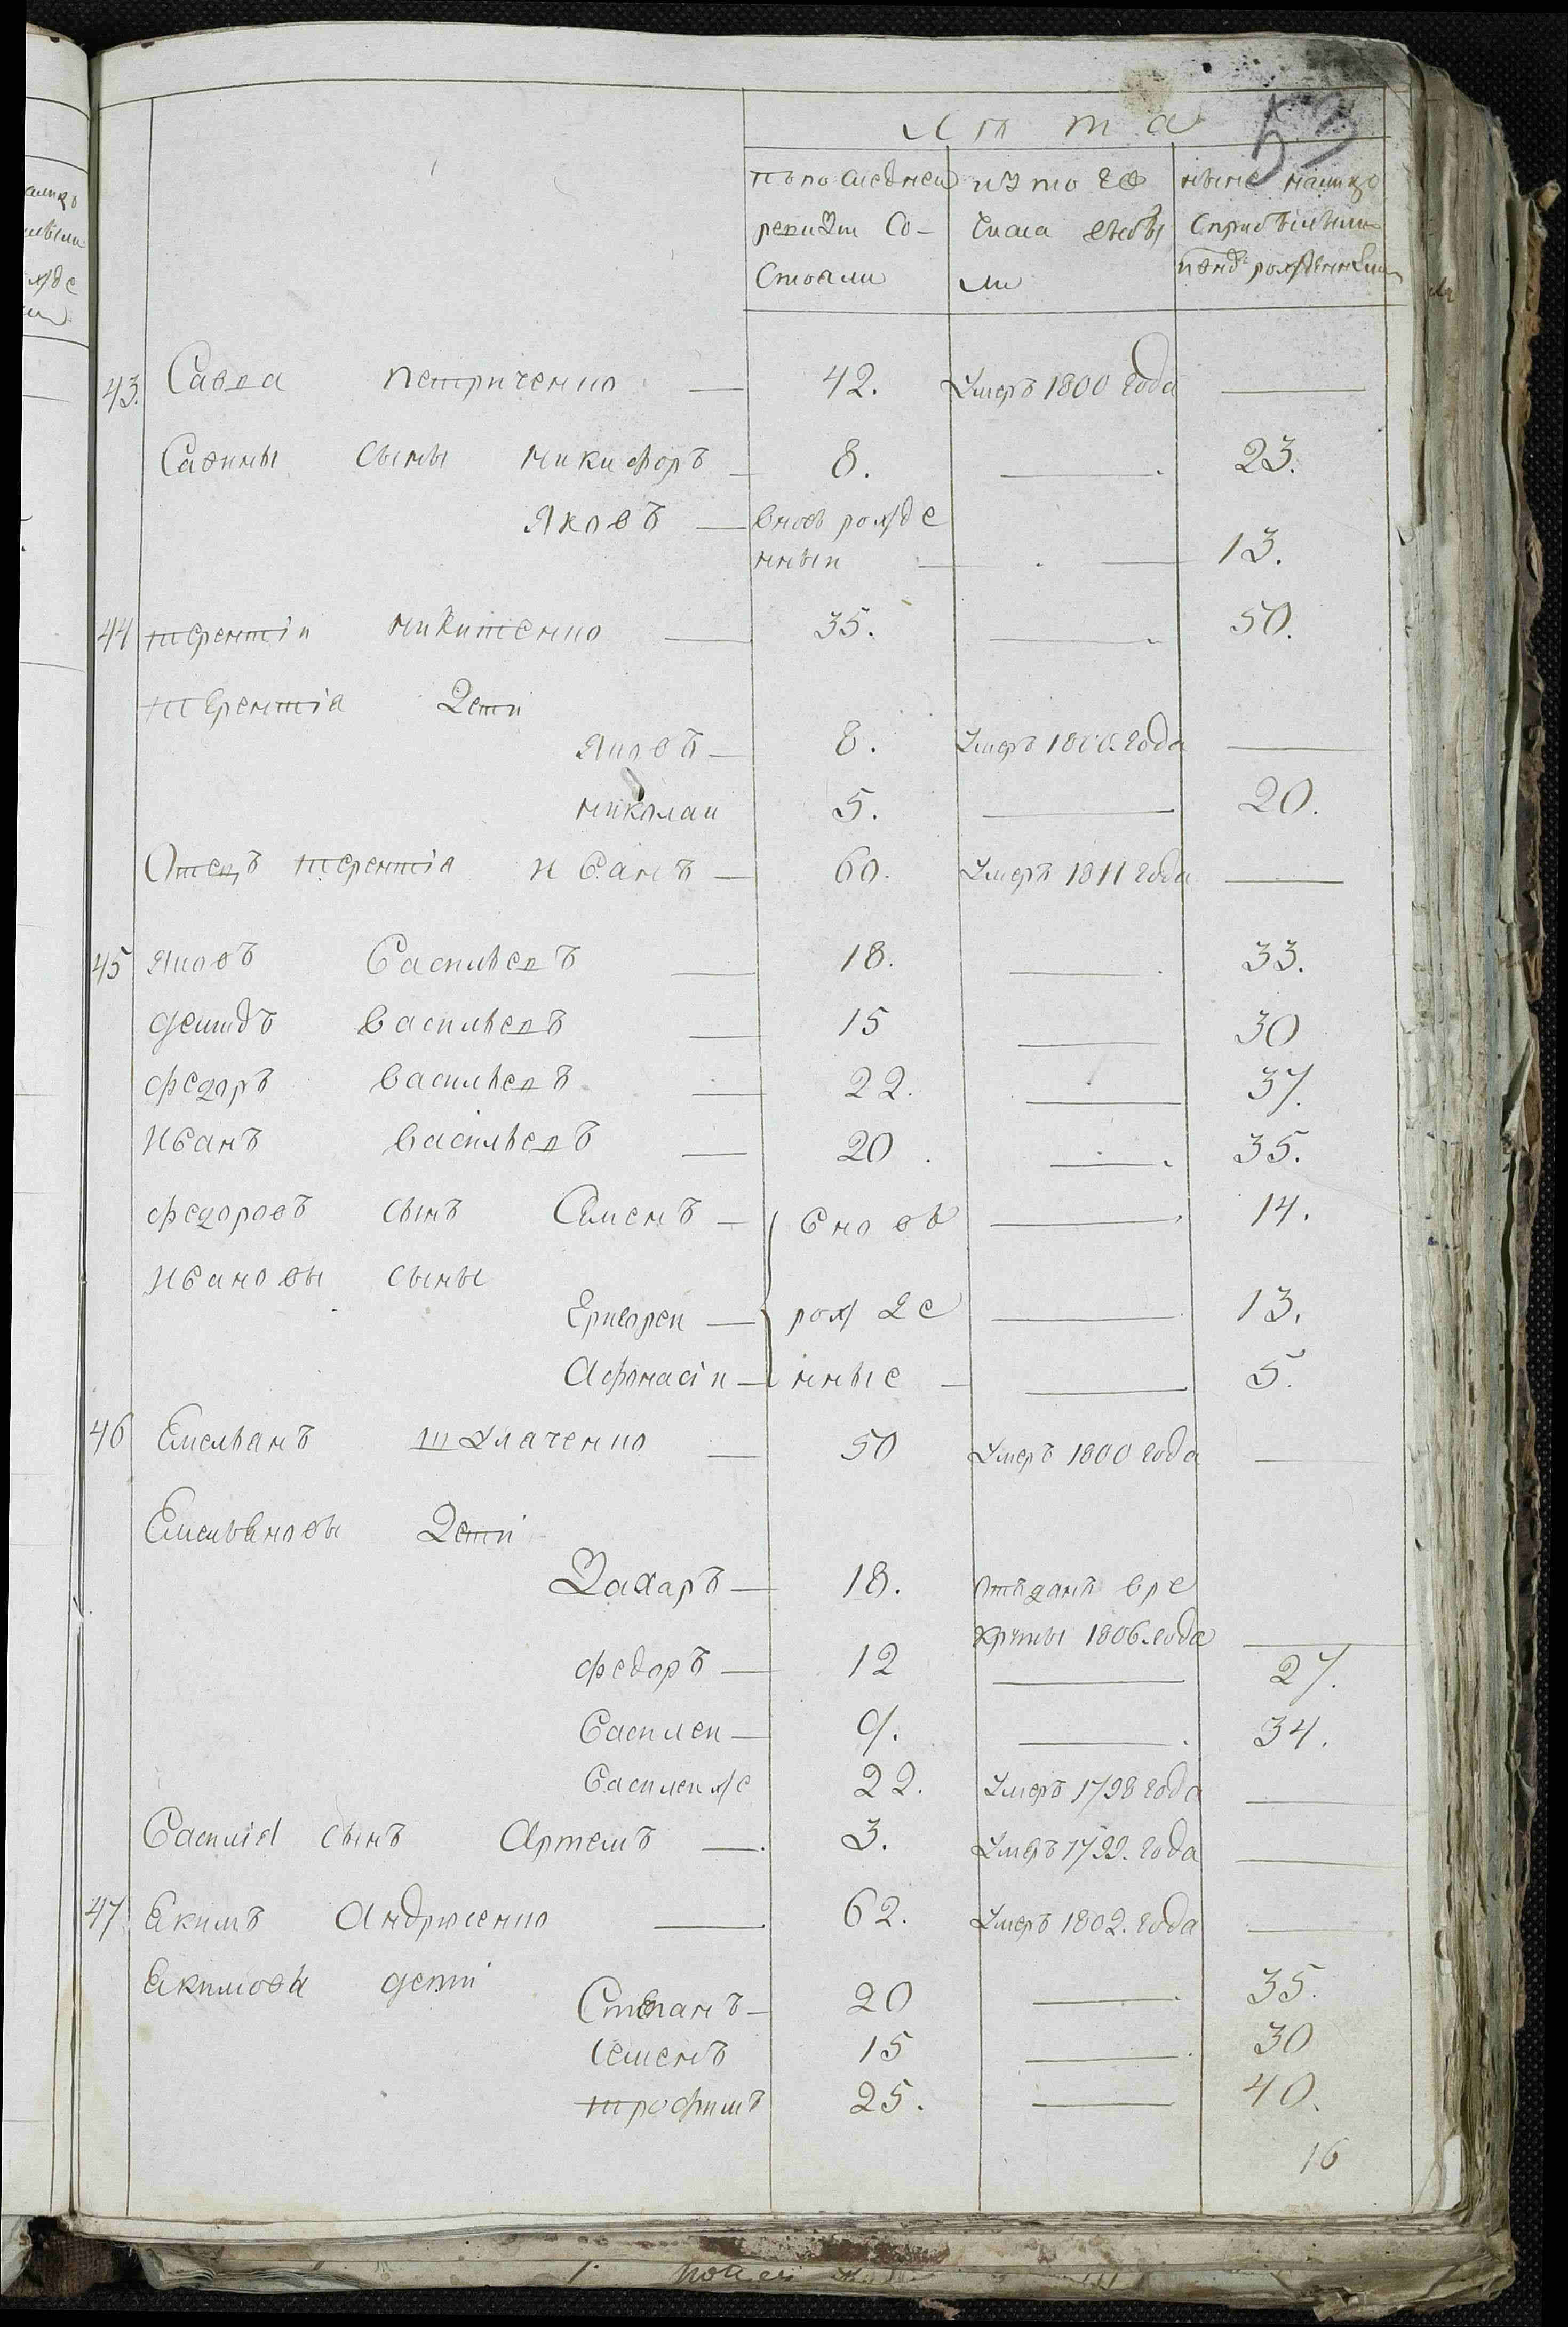 53
Лѣта
попоследней ревизiи Состояли
изтого Числа выбыли
ныне налицо
Сприбылыми рожденными
43. Савва Петриченко — 42. Умеръ 1800 года —
Савины сыны Никифоръ — 8. — 23.
Яковъ — вновь рожде
нный — — 13.
44 Терентiй Никитенко — 35. — 50.
Терентiя Дети
Яковъ — 8. Умеръ 1800. года —
Николай 5. — 20.
Отецъ Терентiя Иванъ — 60. Умеръ 1811 года —
45 Яковъ Васильевъ — 18. — 33.
Демидъ Васильевъ — 15 — 30
Федоръ Васильевъ — 22. — 37.
Иванъ Васильевъ — 20. — 35.
Федоровъ сынъ Семенъ — вновь — 14.
Ивановы сыны
Григорей — рожде — 13.
Афонасiй — нные — — 5.
46 Емельянъ Шулаченко — 50 Умеръ 1800 года —
Емельяновы Детi
Захаръ — 18. отъданъ вре
круты 1806. года —
Федоръ — 12 — 27.
Василей — 9. — 34.
Василей же 22. Умеръ 1798 года —
Василiя сынъ Артемъ — 3. Умеръ 1799. года —
47 Екимъ Андрюсенко — 62. Умеръ 1802. года —
Екимовы детi
Степанъ — 20 — 35.
Семенъ 15 — 30
Трофимъ 25. — 40.
16